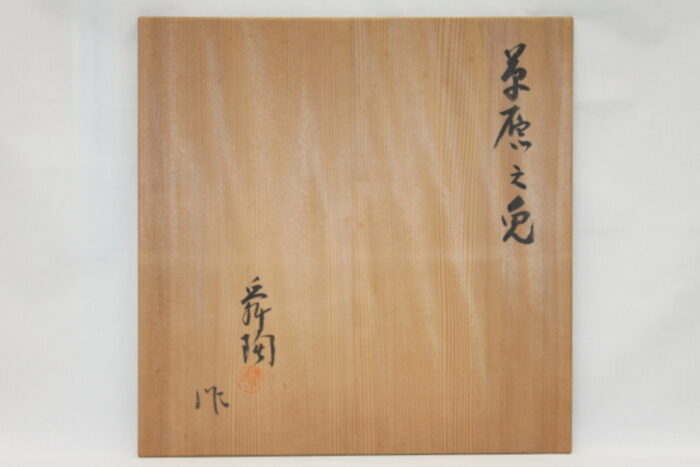 草原之兎
舜陶
作